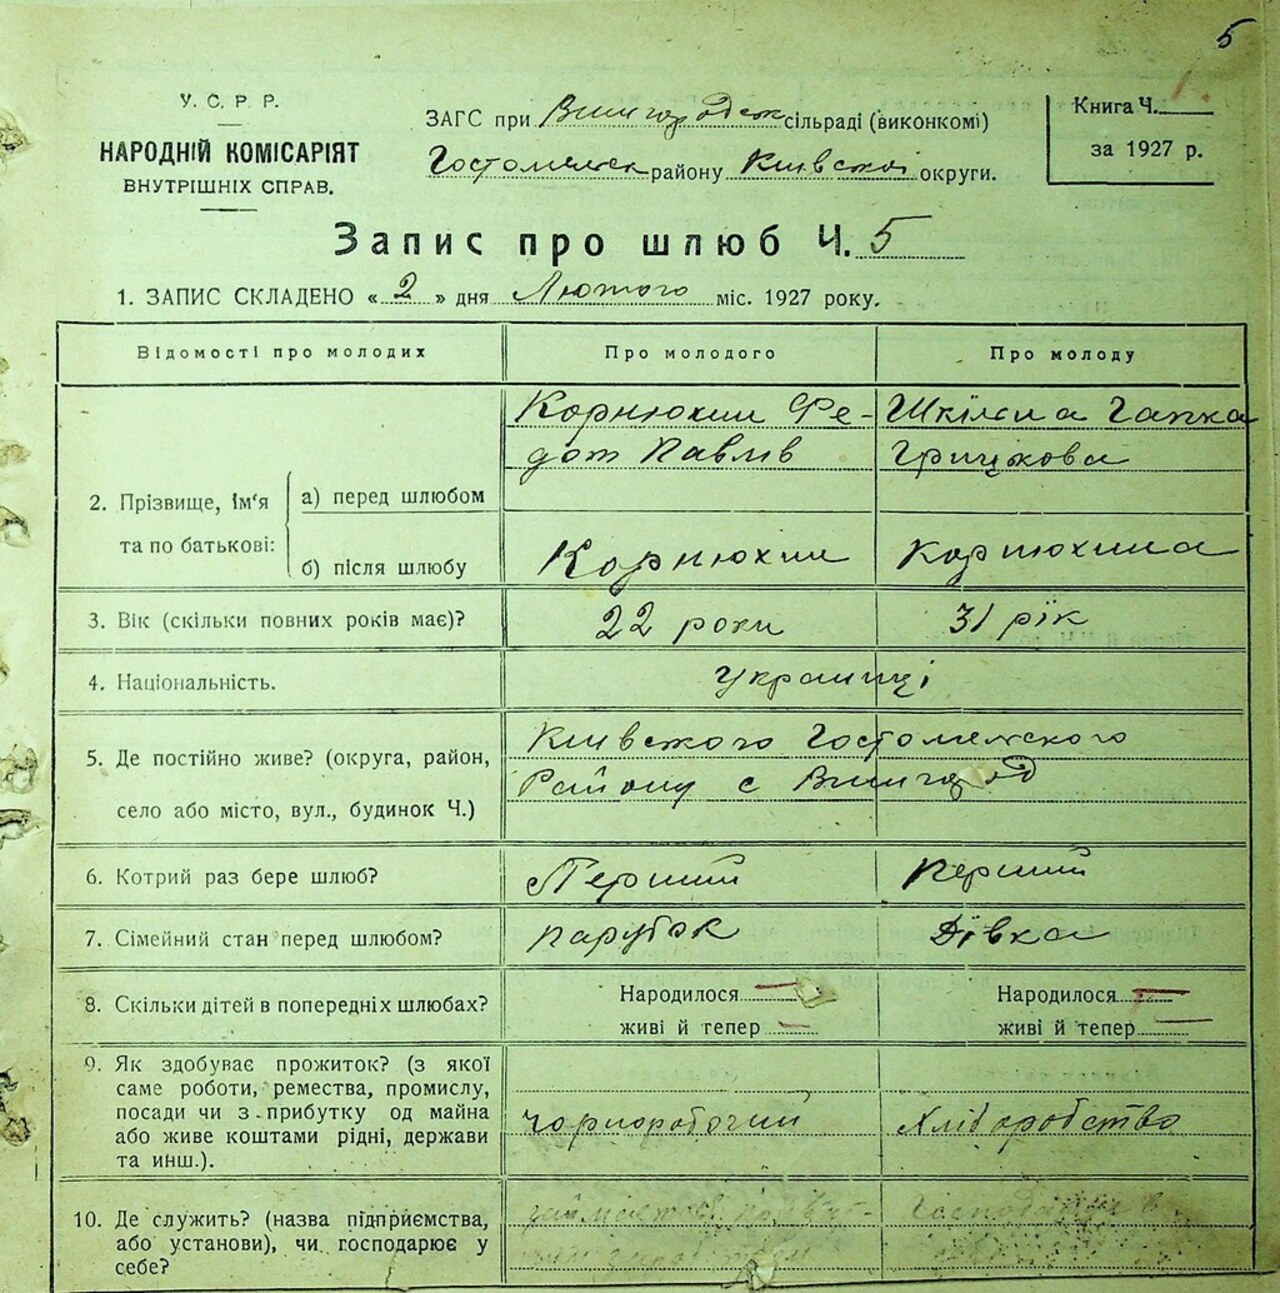 5
У. С. Р. Р.
НАРОДНІЙ КОМІСАРІЯТ
ВНУТРІШНІХ СПРАВ.
ЗАГС при Вишгородск сільраді (виконкомі)
Гостомельск району Київскої округи.
Книга Ч.
за 1927 р.
Запис про шлюб Ч. 5
1. ЗАПИС СКЛАДЕНО « 2 » дня Лютого міс. 1927 року.
Відомості про молодих
Про молодого
Про молоду
2. Прізвище, ім'я
та по батькові:
а) перед шлюбом
Корнюхин Фе-
дот Павлів
Гапка
Грицкова
б) після шлюбу
Корнюхин
Корнюхина
3. Вік (скільки повних років має)?
22 роки
31 рік
4. Національність.
Українці
5. Де постійно живе? (округа, район,
село або місто, вул., будинок Ч.)
Київского Гостомельского
Району с Вишгород
6. Котрий раз бере шлюб?
Перший
Перший
7. Сімейний стан перед шлюбом?
парубок
Дівка
8. Скільки дітей в попередніх шлюбах?
Народилося —
живі й тепер —
Народилося —
живі й тепер —
9. Як здобуває прожиток? (з якої
саме роботи, ремества, промислу,
посади чи з прибутку од майна
або живе коштами рідні, держави
та инш.).
чорноробочий
Хліборобство
10. Де служить? (назва підприємства,
або установи), чи господарює у
себе?